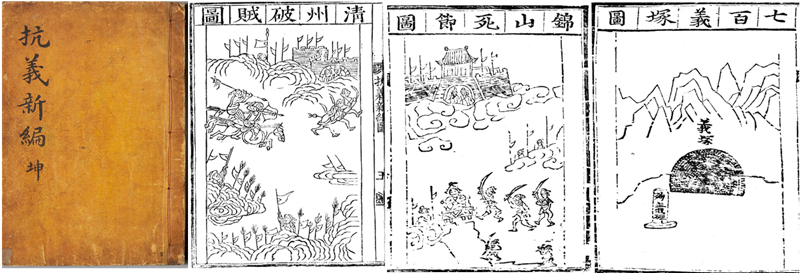 抗義新編
坤
清州破賊圖
錦山死節圖
七百義塚圖
義塚